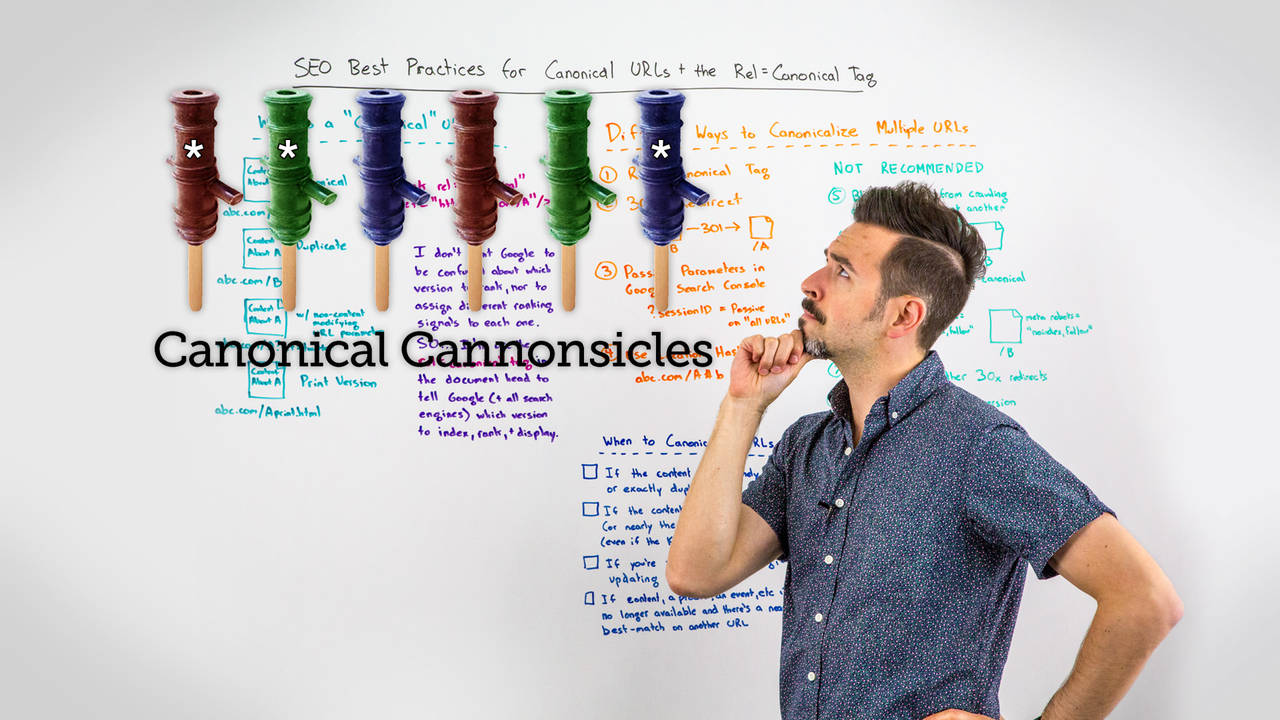 SEO Best Practices for Canonical URLs + the Rel=Canonical Tag
* * *
Canonical Cannonsicles
abc.com/B
Duplicate
Content
About A
w/ non-content
modifying
URL
Content
About A
Print Version
abc.com/Aprint.html
I don't Google to
be about which
version to rank, nor to
assign different ranking
signals to each one.
the document head to
tell Google (+ all search
engines) which version
to index, rank, + display.
Ways to Canonicalize Multiple URLs
① Canonical Tag
②
—301→
B
/A
③ Parameters in
Search Console
?sessionID = Passive
on "all URLs"
abc.com/A#b
NOT RECOMMENDED
⑤ from crawling
another
canonical
meta robots=
"noindex, follow"
/B
other 30x redirects
version
When to URLs
If the content
or exactly
If the content
(or nearly the
(even if the
If you're
updating
If content, a event, etc
no longer available and there's a
best-match on another URL